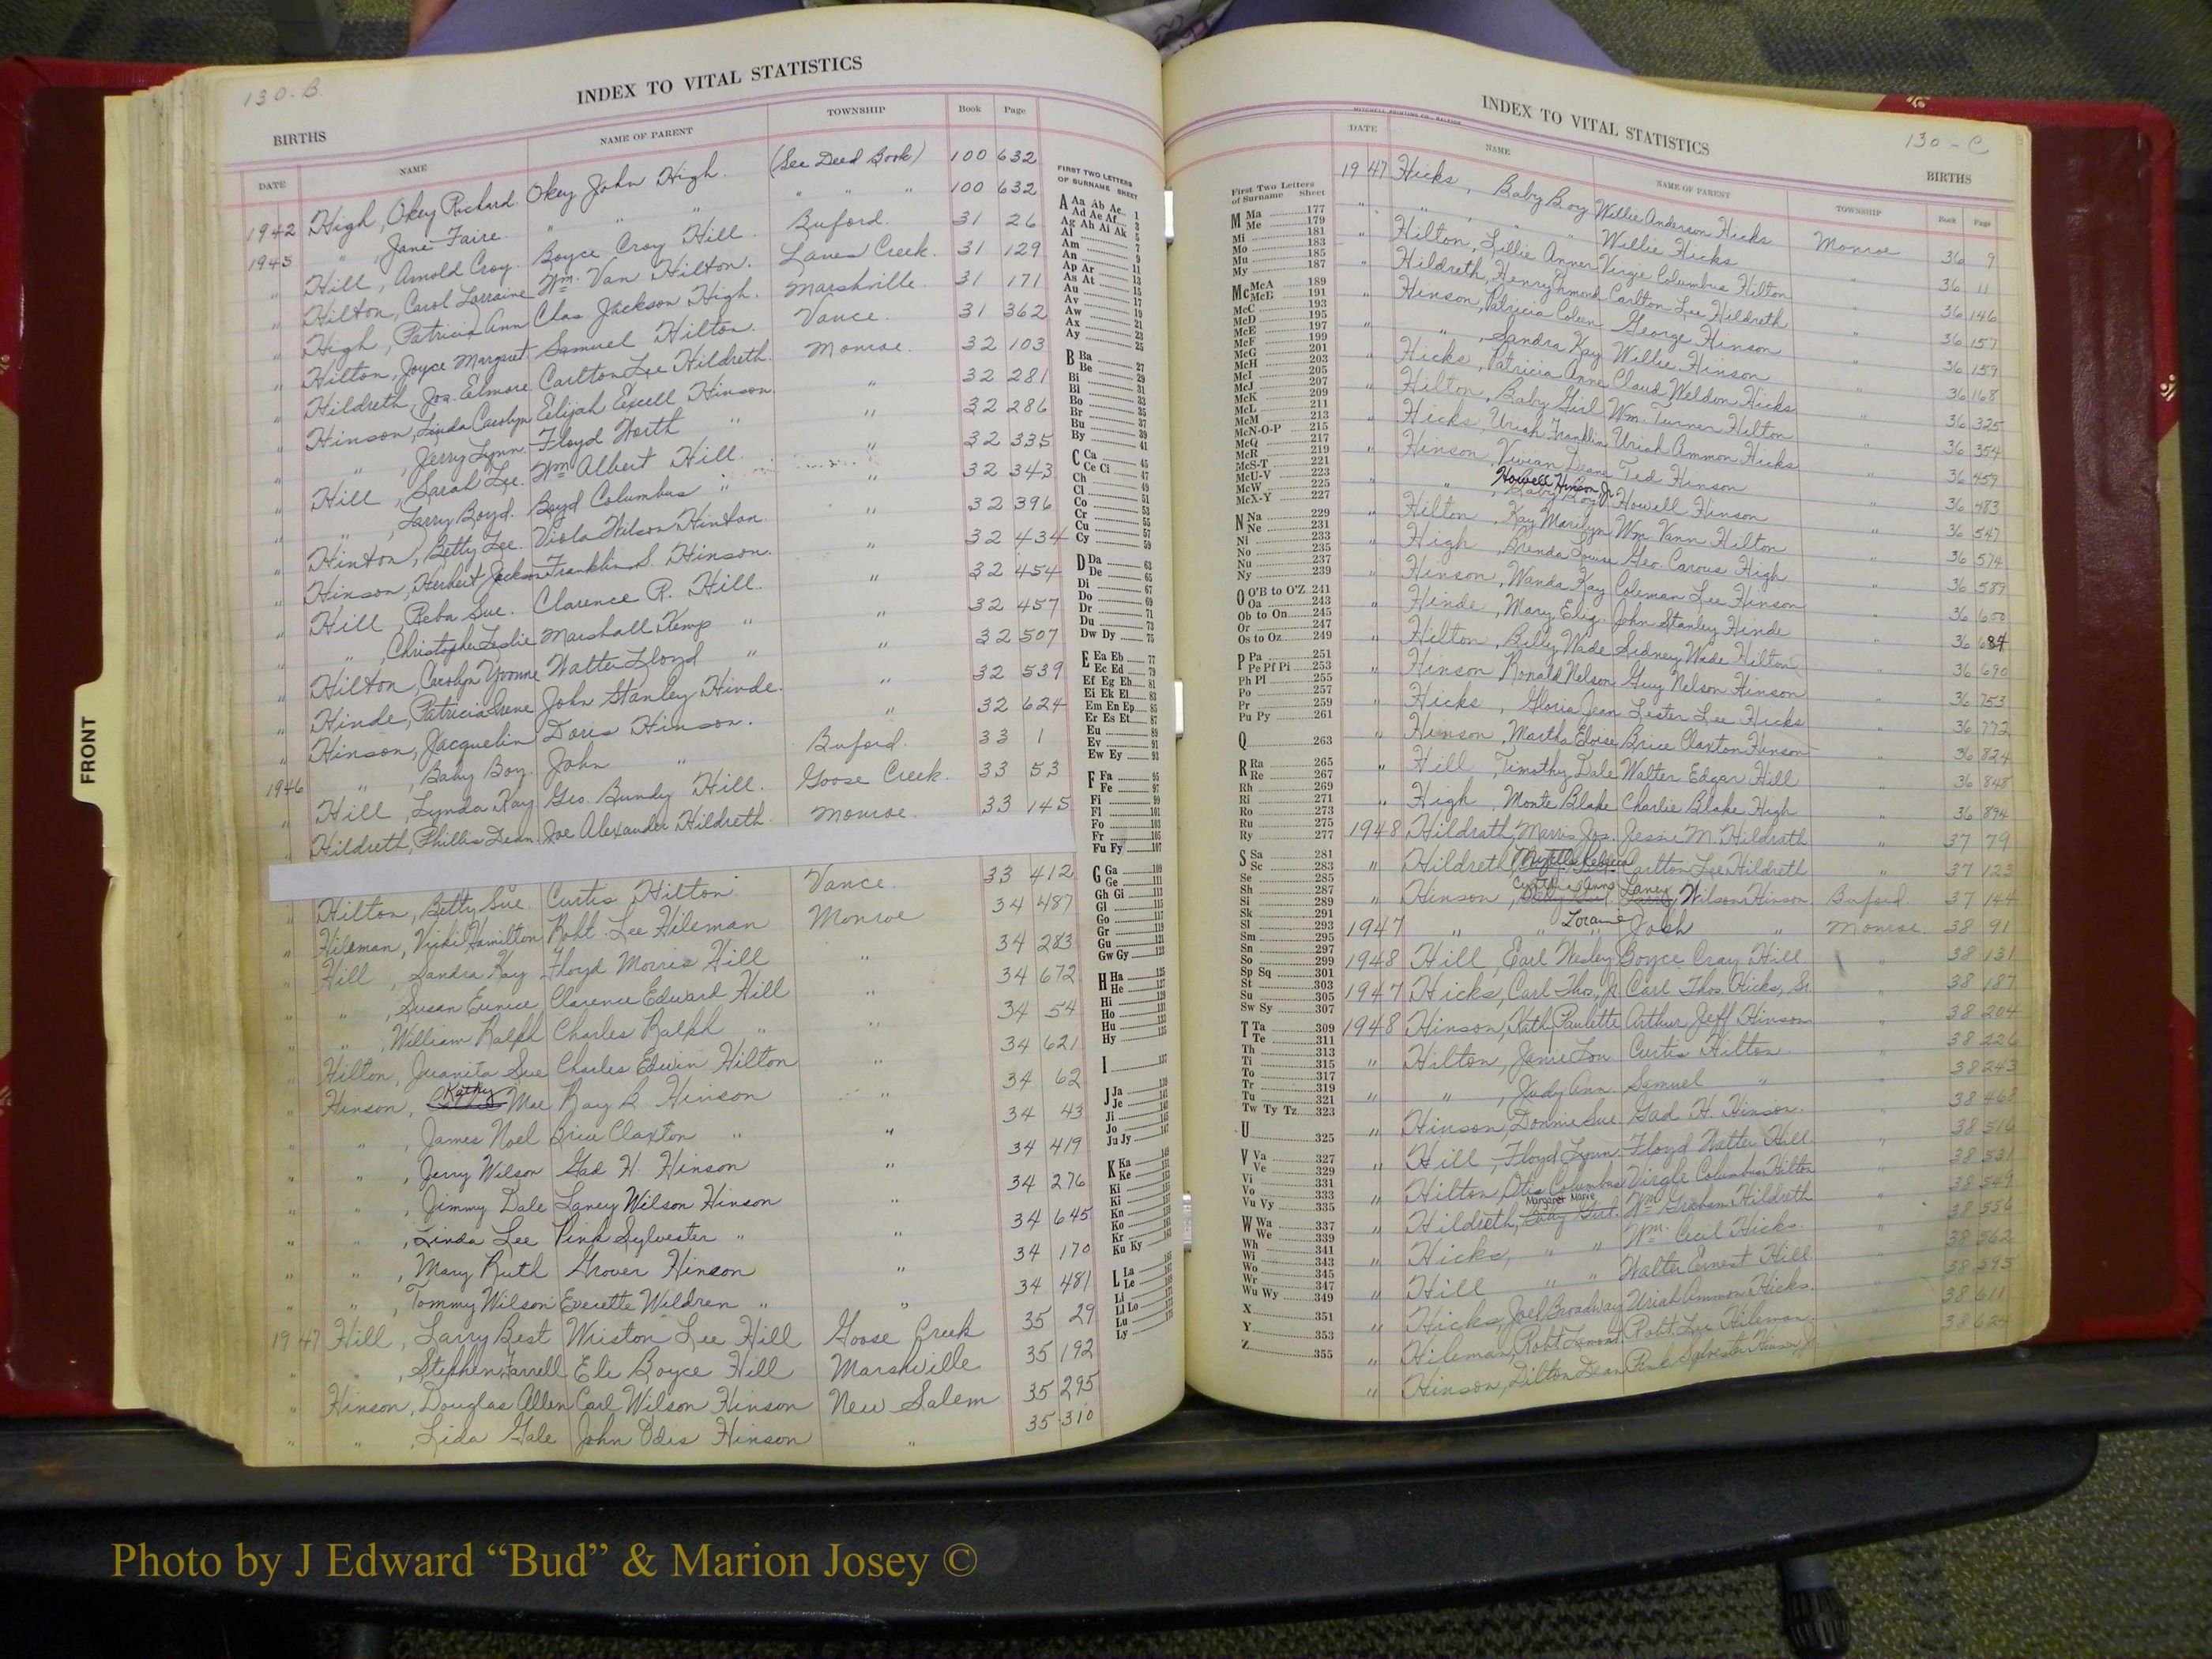 130-B.
INDEX TO VITAL STATISTICS
BIRTHS
DATE NAME NAME OF PARENT TOWNSHIP Book Page
1942 High, Okey Richard Okey John High. (See Deed Book) 100 632
1945 " , Jane Faire. " " " " " 100 632
" Hill, Arnold Croy. Boyce Croy Hill. Buford. 31 26
" Hilton, Carol Lorraine Wm. Van Hilton. Lanes Creek. 31 129
" High, Patricia Ann Chas. Jackson High. Marshville. 31 171
" Hilton, Joyce Margaret Samuel Hilton. Vance. 31 362
" Hildreth, Jos. Elmore Carlton Lee Hildreth. Monroe. 32 103
" Hinson, Linda Carolyn Elijah Excell Hinson. " 32 281
" " , Jerry Lynn. Floyd Worth " " 32 286
" Hill, Sarah Lee. Wm Albert Hill. 32 335
" " , Larry Boyd. Boyd Columbus " " 32 343
" Hinton, Betty Lee. Viola Wilson Hinton. " 32 396
" Hinson, Herbert Jackson Franklin S. Hinson. " 32 434
" Hill, Reba Sue. Clarence R. Hill. " 32 454
" " , Christopher Leslie Marshall Kemp " " 32 457
" Hilton, Carolyn Yvonne Walter Lloyd " " 32 507
" Hinde, Patricia Irene John Stanley Hinde. " 32 539
" Hinson, Jacquelin Doris Hinson. " 32 624
1946 " , Baby Boy. John " Buford. 33 1
" Hill, Lynda Kay Geo. Bundy Hill. Goose Creek. 33 53
" Hildreth, Phillis Dean. Joe Alexander Hildreth. Monroe. 33 145
" Hilton, Betty Sue. Curtis Hilton. Vance. 33 412
" Hileman, Vicki Hamilton Robt. Lee Hileman Monroe 34 487
" Hill, Sandra Kay Floyd Morris Hill " 34 283
" " , Susan Eunice Clarence Edward Hill " 34 672
" " , William Ralph Charles Ralph " " 34 54
" Hilton, Juanita Sue Charles Edwin Hilton " 34 621
" Hinson, Kathy Mae Ray B. Hinson " 34 62
" " , James Noel Brice Claxton " " 34 43
" " , Jerry Wilson Gad H. Hinson " 34 419
" " , Jimmy Dale Laney Wilson Hinson " 34 276
" " , Linda Lee Pink Sylvester " " 34 645
" " , Mary Ruth Grover Hinson " 34 170
" " , Tommy Wilson Everette Wildren " " 34 481
1947 Hill, Larry Best Wriston Lee Hill Goose Creek 35 29
" " , Stephen Farrell Eli Boyce Hill Marshville 35 192
" Hinson, Douglas Allen Carl Wilson Hinson New Salem 35 295
" " , Lida Gale John Odis Hinson " 35 310
FIRST TWO LETTERS
OF SURNAME SHEET
A Aa Ab Ac 1
Ad Ae Af 3
Ag Ah Ai Ak 5
Al 7
Am 9
An 11
Ap Ar 13
As At 15
Au 17
Av 19
Aw 21
Ax 23
Ay 25
B Ba 27
Be 29
Bi 31
Bl 33
Bo 35
Br 37
Bu 39
By 41
C Ca 45
Ce Ci 47
Ch 49
Cl 51
Co 53
Cr 55
Cu 57
Cy 59
D Da 63
De 65
Di 67
Do 69
Dr 71
Du 73
Dw Dy 75
E Ea Eb 77
Ec Ed 79
Ef Eg Eh 81
Ei Ek El 83
Em En Ep 85
Er Es Et 87
Eu 89
Ev 91
Ew Ey 93
F Fa 95
Fe 97
Fi 99
Fl 101
Fo 103
Fr 105
Fu Fy 107
G Ga 109
Ge 111
Gh Gi 113
Gl 115
Go 117
Gr 119
Gu 121
Gw Gy 123
H Ha 125
He
Hi
Ho
Hu
Hy
I
J Ja
Je
Ji
Jo
Ju Jy
K Ka
Ke
Ki
Kn
Ko
Kr
Ku Ky
L La
Le
Li
Ll Lo
Lu
Ly
FRONT
MITCHELL PRINTING CO., RALEIGH
INDEX TO VITAL STATISTICS
130-C
BIRTHS
DATE NAME NAME OF PARENT TOWNSHIP Book Page
1947 Hicks, Baby Boy Willie Anderson Hicks Monroe 36 9
" " " " Willie Hicks " 36 11
" Hilton, Lillie Anner Virgie Columbus Hilton " 36 146
" Hildreth, Henry Hmond Carlton Lee Hildreth " 36 157
" Hinson, Patricia Coleen George Hinson 36 159
" " , Sandra Kay Willie Hinson " 36 168
" Hicks, Patricia Anne Claud Weldon Hicks 36 325
" Hilton, Baby Girl Wm. Turner Hilton " 36 354
" Hicks, Uriah Franklin Uriah Ammon Hicks 36 459
" Hinson, Vivian Diane Ted Hinson 36 483
" " , Baby Boy Howell Hinson Jr Howell Hinson 36 547
" Hilton, Kay Marilyn Wm. Vann Hilton " 36 574
" High, Brenda Louise Geo. Carous High 36 589
" Hinson, Wanda Kay Coleman Lee Hinson " 36 600
" Hinde, Mary Eliz. John Stanley Hinde 36 684
" Hilton, Billy Wade Sidney Wade Hilton " 36 690
" Hinson Ronald Nelson Guy Nelson Hinson 36 753
" Hicks, Gloria Jean Lester Lee Hicks 36 772
" Hinson, Martha Eloise Brice Claxton Hinson 36 824
" Hill, Timothy Dale Walter Edgar Hill 36 848
" High, Monte Blake Charlie Blake High 36 894
1948 Hildrath, Marvs Jos. Jessie M. Hildrath " 37 79
" Hildreth, Carlton Lee Hildreth " 37 123
" Hinson, Cynthia Anne Laney Wilson Hinson Buford. 37 144
1947 " " Loraine Josh " Monroe. 38 91
1948 Hill, Earl Wesley Boyce Cray Hill " 38 131
1947 Hicks, Carl Thos., Jr. Carl Thos. Hicks, Sr. " 38 187
1948 Hinson, Kath Paulette Arthur Jeff Hinson " 38 204
" Hilton, Janie Lou Curtis Hilton. " 38 226
" " , Judy Ann Samuel " " 38 243
" Hinson, Donnie Sue. Gad H. Hinson. " 38 468
" Hill, Floyd Lynn. Floyd Walter Hill. " 38 516
" Hilton, Otis Columbus Virgle Columbus Hilton 38 531
" Hildreth, Baby Girl. Margaret Marie Wm Graham Hildreth " 38 549
" Hicks, " " Wm. Cecil Hicks. 38 556
" Hill " " Walter Ernest Hill 38 562
" Hicks, Joel Broadway Uriah Ammon Hicks. 38 595
" Hileman, Robt. Lamont Robt. Lee Hileman. 38 611
" Hinson, Dilton Dean Pink Sylvester Hinson Jr 38 624
First Two Letters
of Surname Sheet
M Ma 177
Me 179
Mi 181
Mo 183
Mu 185
My 187
Mc McA 189
McB 191
McC 193
McD 195
McE 197
McF 199
McG 201
McH 203
McI 205
McJ 207
McK 209
McL 211
McM 213
McN-O-P 215
McQ 217
McR 219
McS-T 221
McU-V 223
McW 225
McX-Y 227
N Na 229
Ne 231
Ni 233
No 235
Nu 237
Ny 239
O O'B to O'Z 241
Oa 243
Ob to On 245
Or 247
Os to Oz 249
P Pa 251
Pe Pf Pi 253
Ph Pl 255
Po 257
Pr 259
Pu Py 261
Q 263
R Ra 265
Re 267
Rh 269
Ri 271
Ro 273
Ru 275
Ry 277
S Sa 281
Sc 283
Se 285
Sh 287
Si 289
Sk 291
Sl 293
Sm 295
Sn 297
So 299
Sp Sq 301
St 303
Su 305
Sw Sy 307
T Ta 309
Te 311
Th 313
Ti 315
To 317
Tr 319
Tu 321
Tw Ty Tz 323
U 325
V Va 327
Ve 329
Vi 331
Vo 333
Vu Vy 335
W Wa 337
We 339
Wh 341
Wi 343
Wo 345
Wr 347
Wu Wy 349
X 351
Y 353
Z 355
Photo by J Edward “Bud” & Marion Josey ©